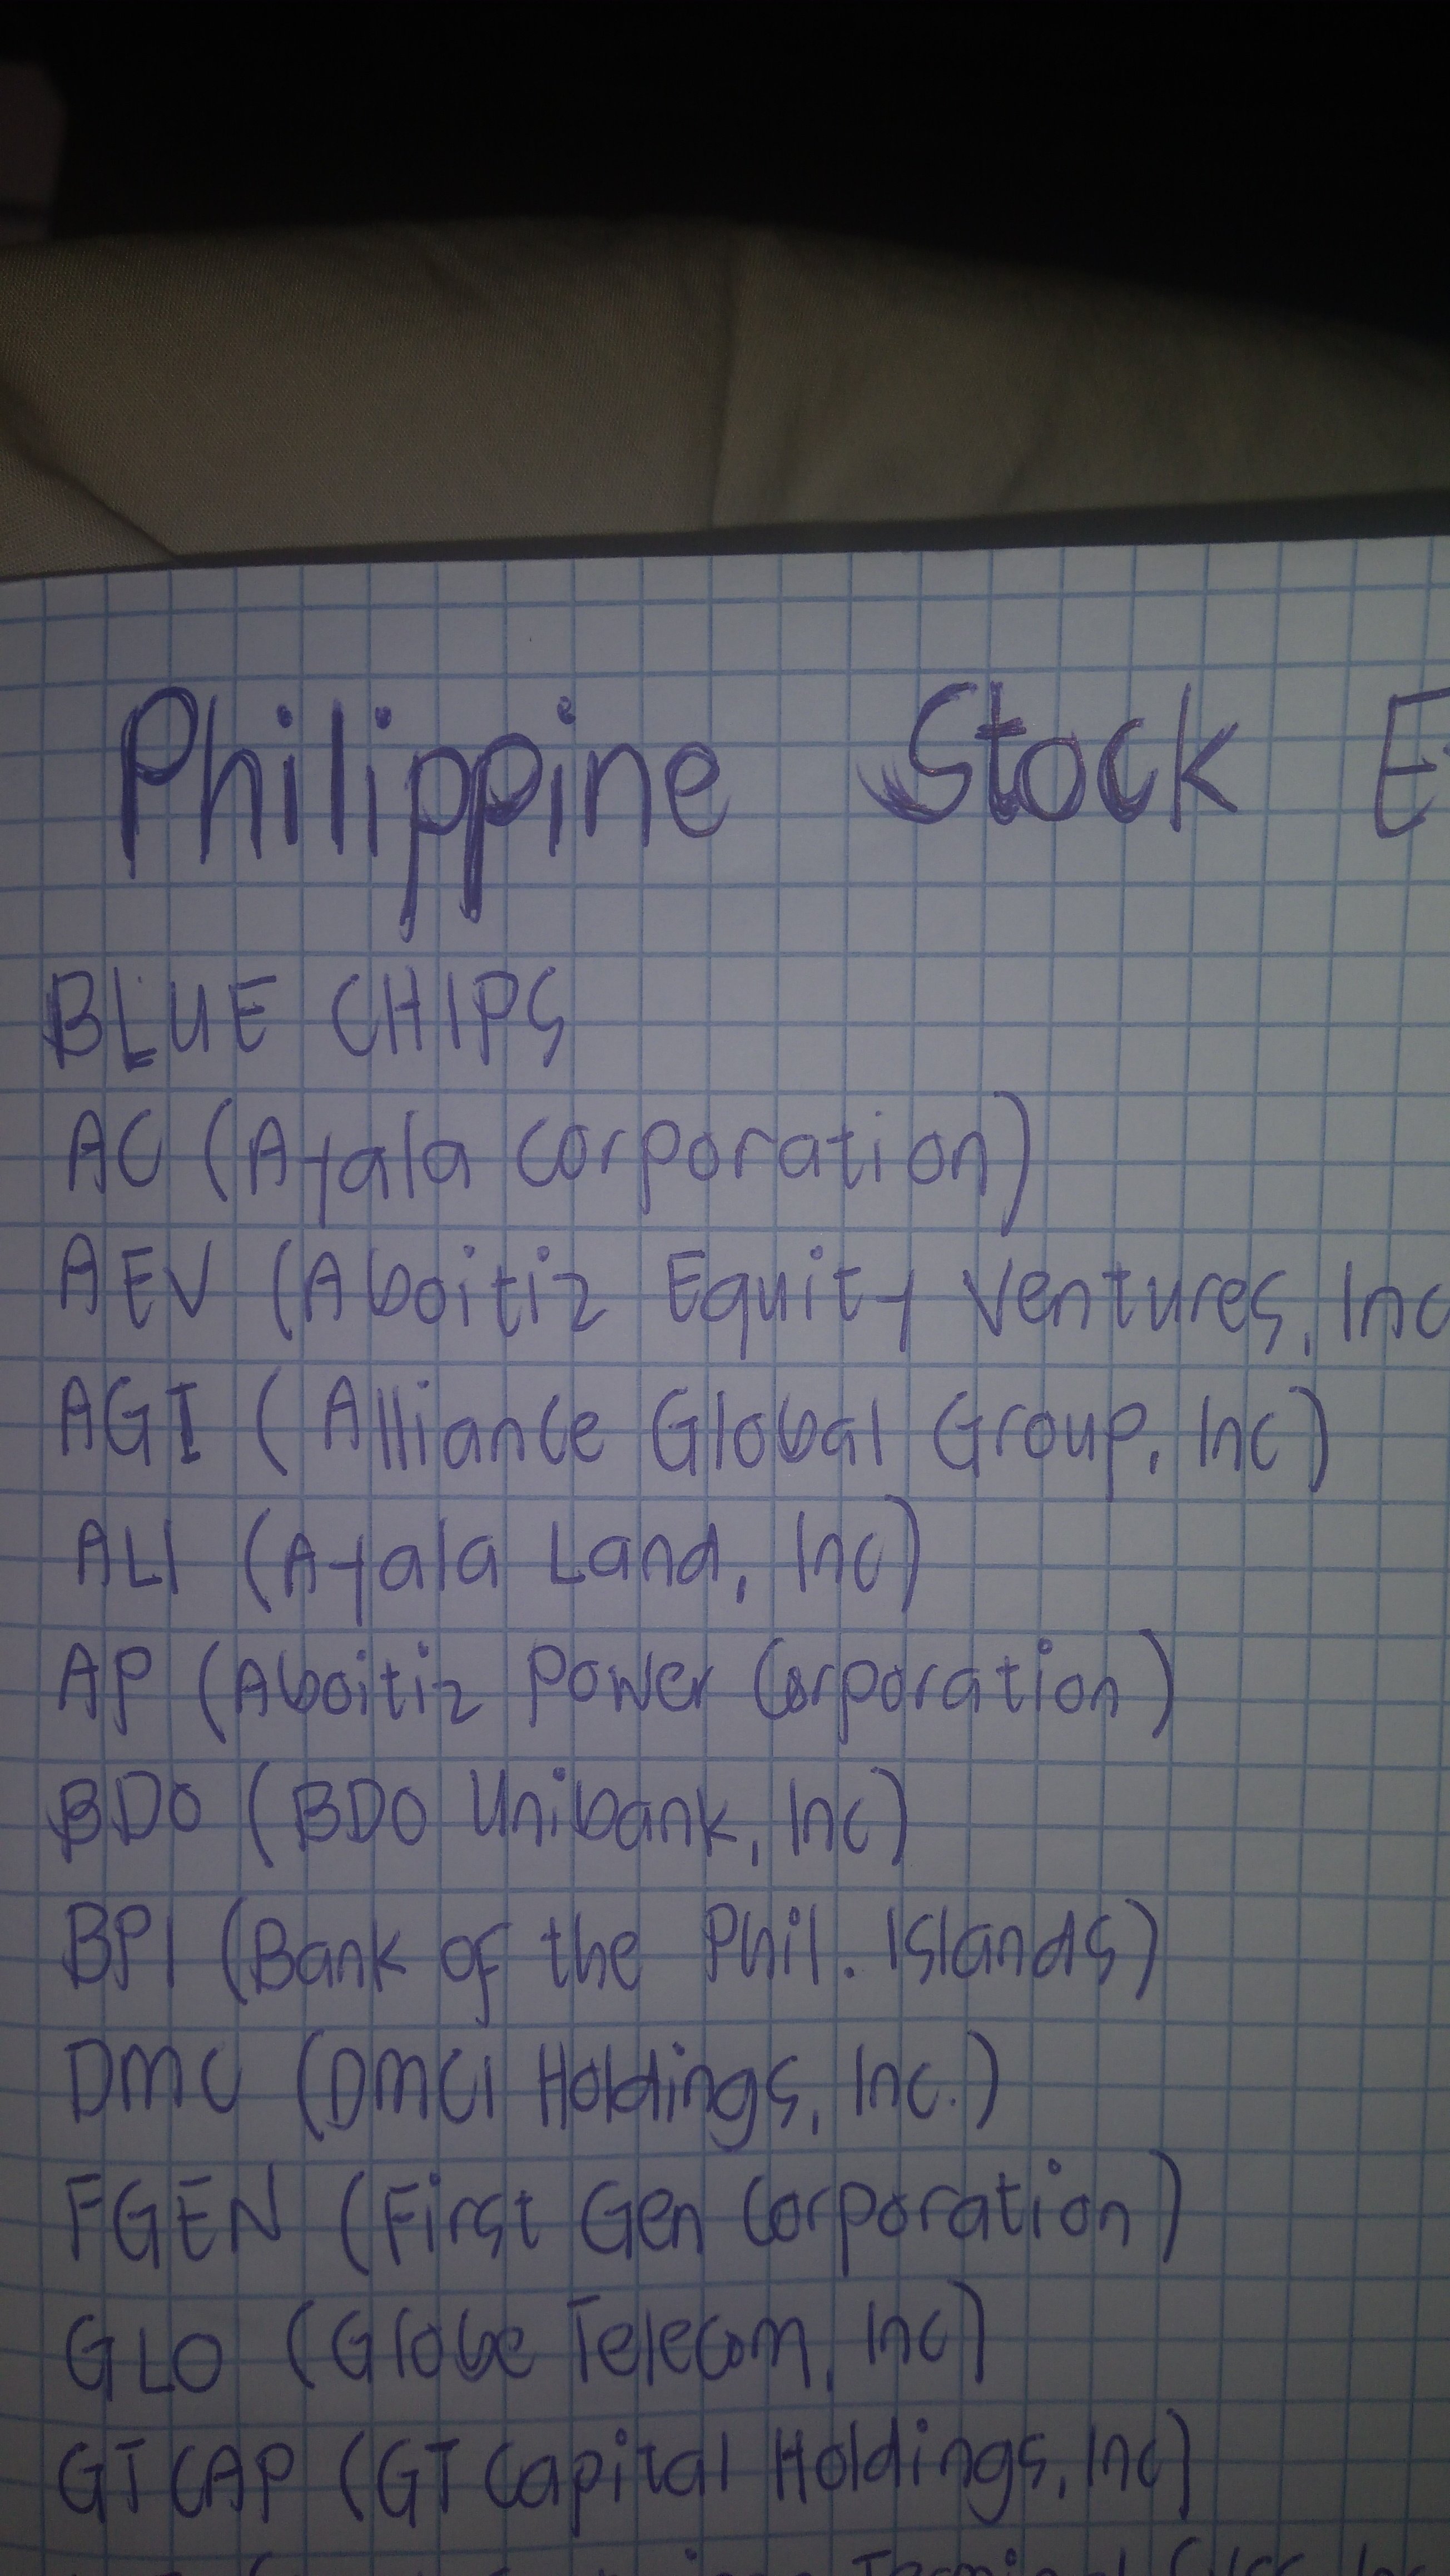 Philippine Stock E
BLUE CHIPS
AC (Ayala Corporation)
AEV (Aboitiz Equity Ventures, Inc
AGI (Alliance Global Group, Inc)
ALI (Ayala Land, Inc)
AP (Aboitiz Power Corporation)
BDO (BDO Unibank, Inc)
BPI (Bank of the Phil. Islands)
DMC (DMCI Holdings, Inc.)
FGEN (First Gen Corporation)
GLO (Globe Telecom, Inc)
GTCAP (GT Capital Holdings, Inc)
Terminal